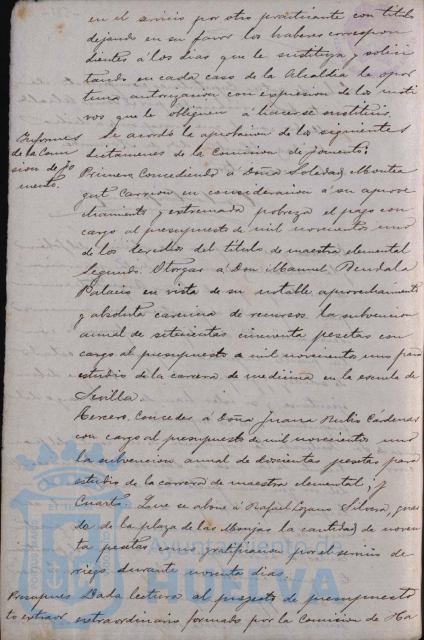 en el servicio por otro practicante con titulo
dejando en su favor los haberes correspon
dientes á los dias que le sustituya y solici
tando en cada caso de la Alcaldia la opor
tuna autorizacion con expresion de los moti
vos que le obliguen a hacerse sustituir.
Informes
de la Comi
sion de Fo
mento.
Se acordó la aprobacion de los siguientes
dictamenes de la Comision de Fomento:
Primero, Concediendo á Doña Soledad Montea
gut Carrion en consideracion á su aprove
chamiento y extremada pobreza el pago con
cargo al presupuesto de mil novecientos uno
de los derechos del titulo de maestra elemental
Segundo. Otorgar á Don Manuel Rendala
Palacio en vista de su notable aprovechamiento
y absoluta carencia de recursos la subvencion
anual de setecientas cincuenta pesetas con
cargo al presupuesto de mil novecientos uno para
estudio de la carrera de medicina en la escuela de
Sevilla.
Tercero. Conceder á Doña Juana Rubio Cárdenas
con cargo al presupuesto de mil novecientos uno
la subvencion anual de doscientas pesetas para
estudio de la carrera de maestra elemental; y
Cuarto. Que se abone á Rafael Lozano Silvera, guar
da de la plaza de las Monjas la cantidad de noven
ta pesetas como gratificacion por el servicio de
riego durante noventa dias.
Presupues
to extraor
Dada lectura al proyecto de presupuesto
extraordinario formado por la Comision de Ha
Ayuntamiento de
HUELVA